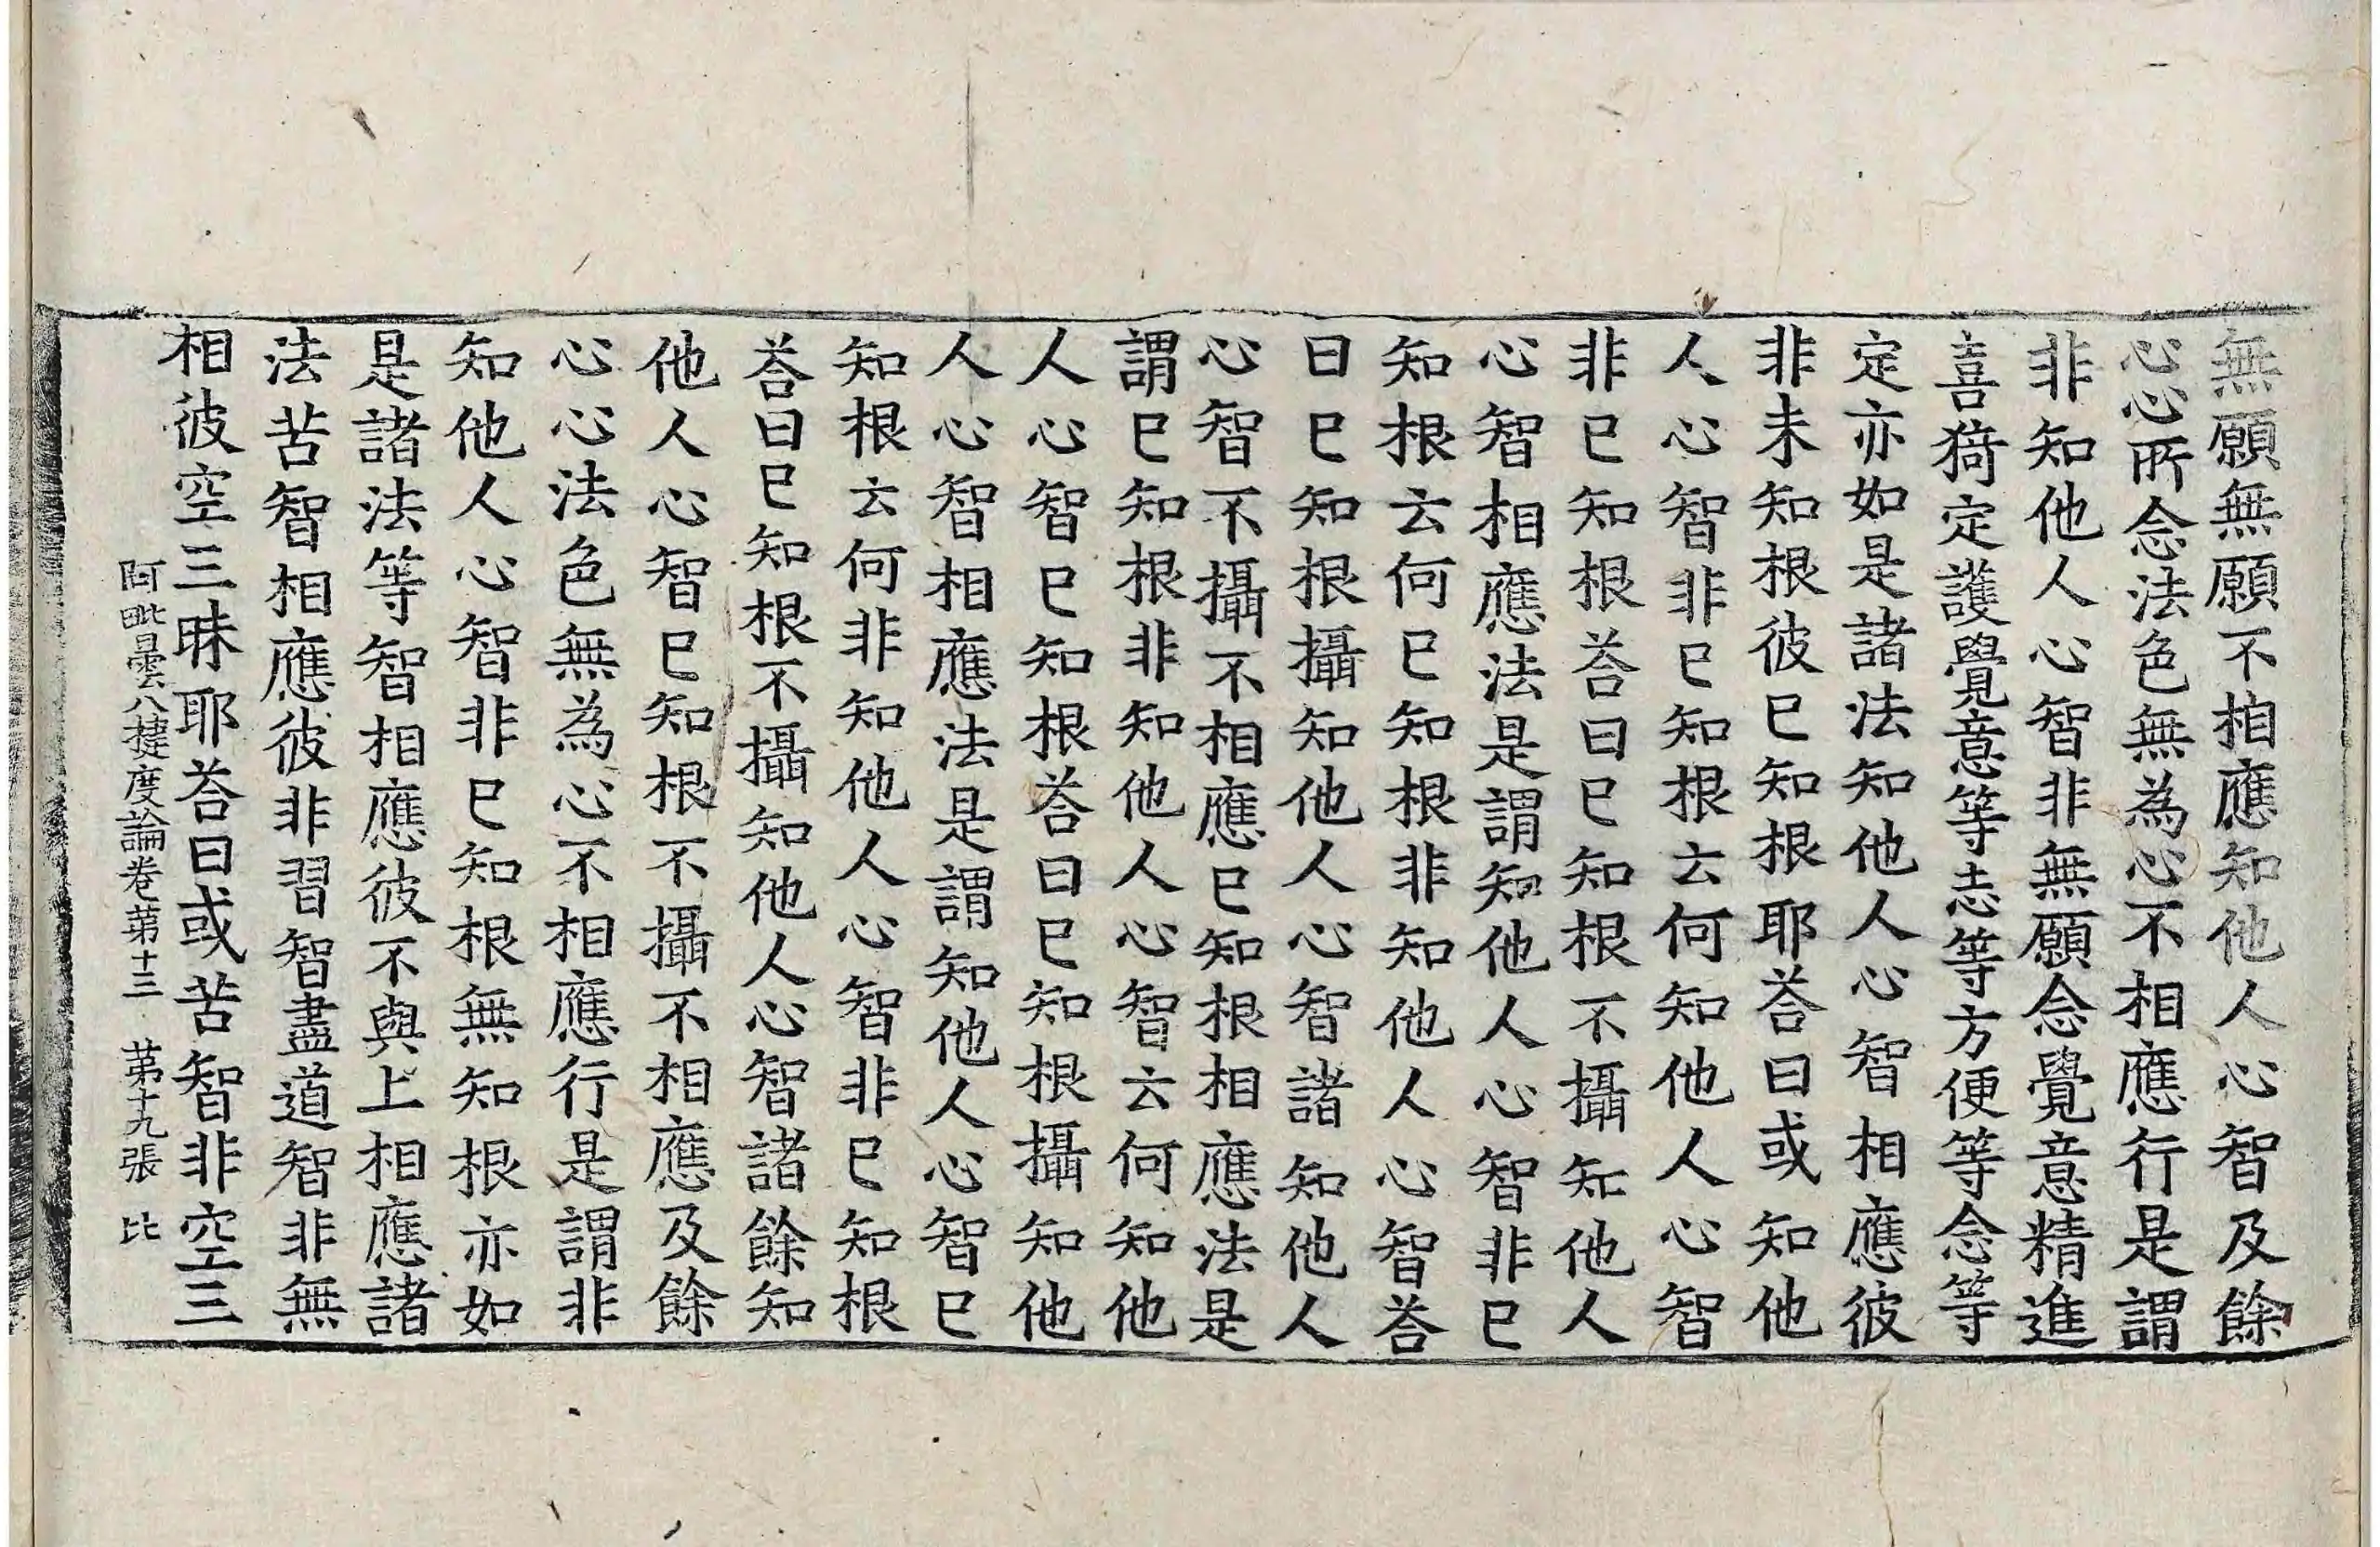 無願無願不相應知他人心智及餘
心心所念法色無為心不相應行是謂
非知他人心智非無願念覺意精進
喜猗定護覺意等志等方便等念等
定亦如是諸法知他人心智相應彼
非未知根彼巳知根耶荅曰或知他
人心智非巳知根云何知他人心智
非巳知根荅曰巳知根不攝知他人
心智相應法是謂知他人心智非巳
知根云何巳知根非知他人心智荅
曰巳知根攝知他人心智諸知他人
心智不攝不相應巳知根相應法是
謂巳知根非知他人心智云何知他
人心智巳知根荅曰巳知根攝知他
人心智相應法是謂知他人心智巳
知根云何非知他人心智非巳知根
荅曰巳知根不攝知他人心智諸餘知
他人心智巳知根不攝不相應及餘
心心法色無為心不相應行是謂非
知他人心智非巳知根無知根亦如
是諸法等智相應彼不與上相應諸
法苦智相應彼非習智盡道智非無
相彼空三昧耶荅曰或苦智非空三
阿毗曇八揵度論卷第十三 第十九張 比